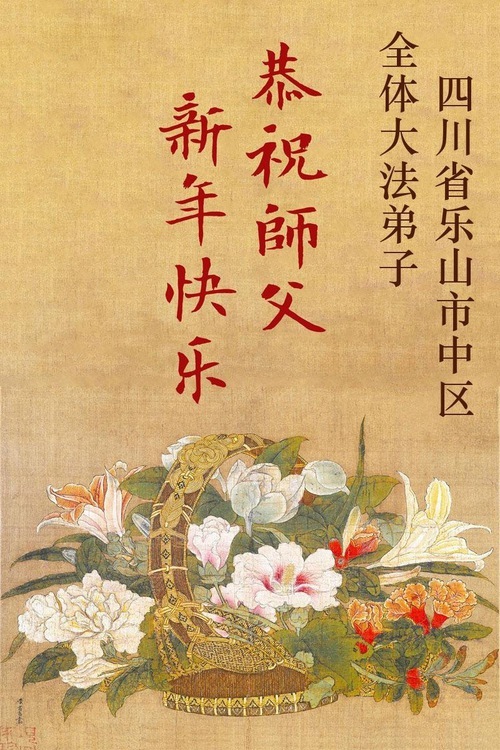 四川省乐山市中区
全体大法弟子
恭祝師父
新年快乐